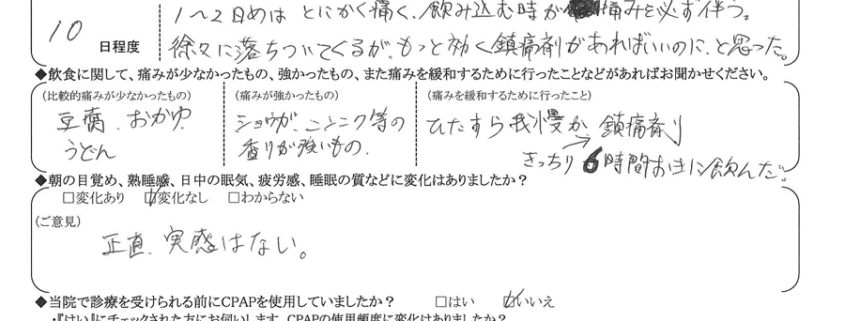 1〜2日めは とにかく痛く、飲み込む時が 痛みを必ず伴う。
10 日程度
徐々に落ちついてくるが、もっと効く鎮痛剤があればいいのに、と思った。
◆飲食に関して、痛みが少なかったもの、強かったもの、また痛みを緩和するために行ったことなどがあればお聞かせください。
(比較的痛みが少なかったもの) (痛みが強かったもの) (痛みを緩和するために行ったこと)
豆腐、おかゆ、 ショウガ、ニンニク等の ひたすら我慢か、鎮痛剤
うどん 香りが強いもの。 →きっちり6時間おきに飲んだ。
◆朝の目覚め、熟睡感、日中の眠気、疲労感、睡眠の質などに変化はありましたか？
□変化あり ☑変化なし □わからない
(ご意見)
正直、実感はない。
◆当院で診療を受けられる前にCPAPを使用していましたか？ □はい ☑いいえ
・『はい』にチェックされた方にお伺いします。CPAPの使用頻度に変化はありましたか？